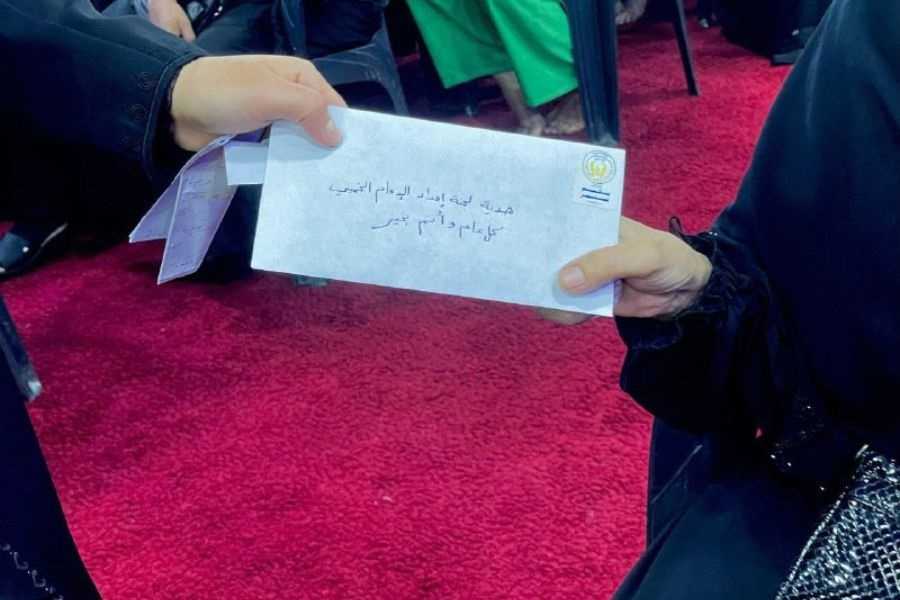 هدية لجنة إمداد الإمام الخميني
كل عام و أنتم بخير